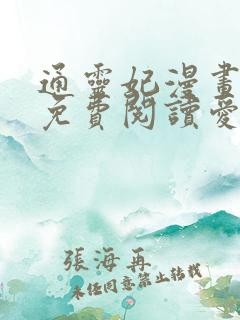 通靈妃漫畫
免費閱讀愛
張海再
未經同意禁止轉載